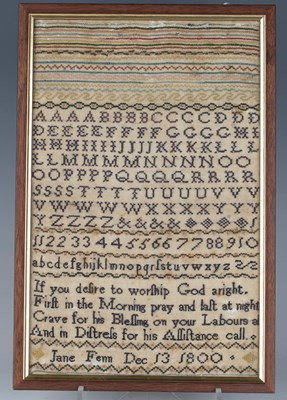 AAAABBBBCCCCDDD
DEEEEFFFFGGGGHH
HHHIIIIJJJJKKKKLLL
LLMMMMNNNNOO
OOPPPPQQQQRRRR
SSSSTTTTUUUUVV
VVWWWWXXXXY
YZZZZ&&&&
1122334455667788910
abcdefghijklmnopqrſstuvwxyz
If you deſire to worſhip God aright
Firſt in the Morning pray and laſt at night
Crave for his Bleſſing on your Labours al
And in Diſtreſs for his Aſſiſtance call
Jane Fenn Dec 13 1800